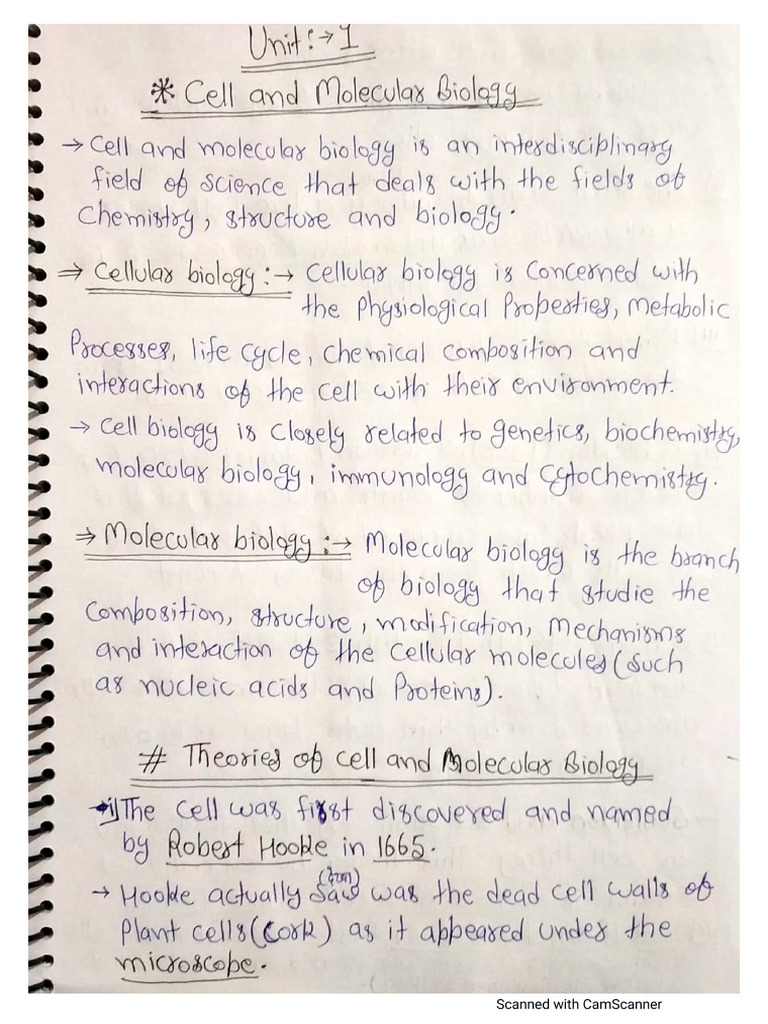 Unit:→ 1
* Cell and Molecular Biology
→ Cell and molecular biology is an interdisciplinary
field of science that deals with the fields of
chemistry, structure and biology.
⇒ Cellular biology:→ Cellular biology is concerned with
the physiological Properties, metabolic
Processes, life cycle, chemical composition and
interactions of the cell with their environment.
→ Cell biology is closely related to genetics, biochemistry,
molecular biology, immunology and cytochemistry.
⇒ Molecular biology:→ Molecular biology is the branch
of biology that studie the
composition, structure, modification, mechanisms
and interaction of the cellular molecules (such
as nucleic acids and Proteins).
# Theories of cell and Molecular Biology
i) The cell was first discovered and named
by Robert Hooke in 1665.
→ Hooke actually saw was the dead cell walls of
Plant cells (cork) as it appeared under the
microscope.
Scanned with CamScanner